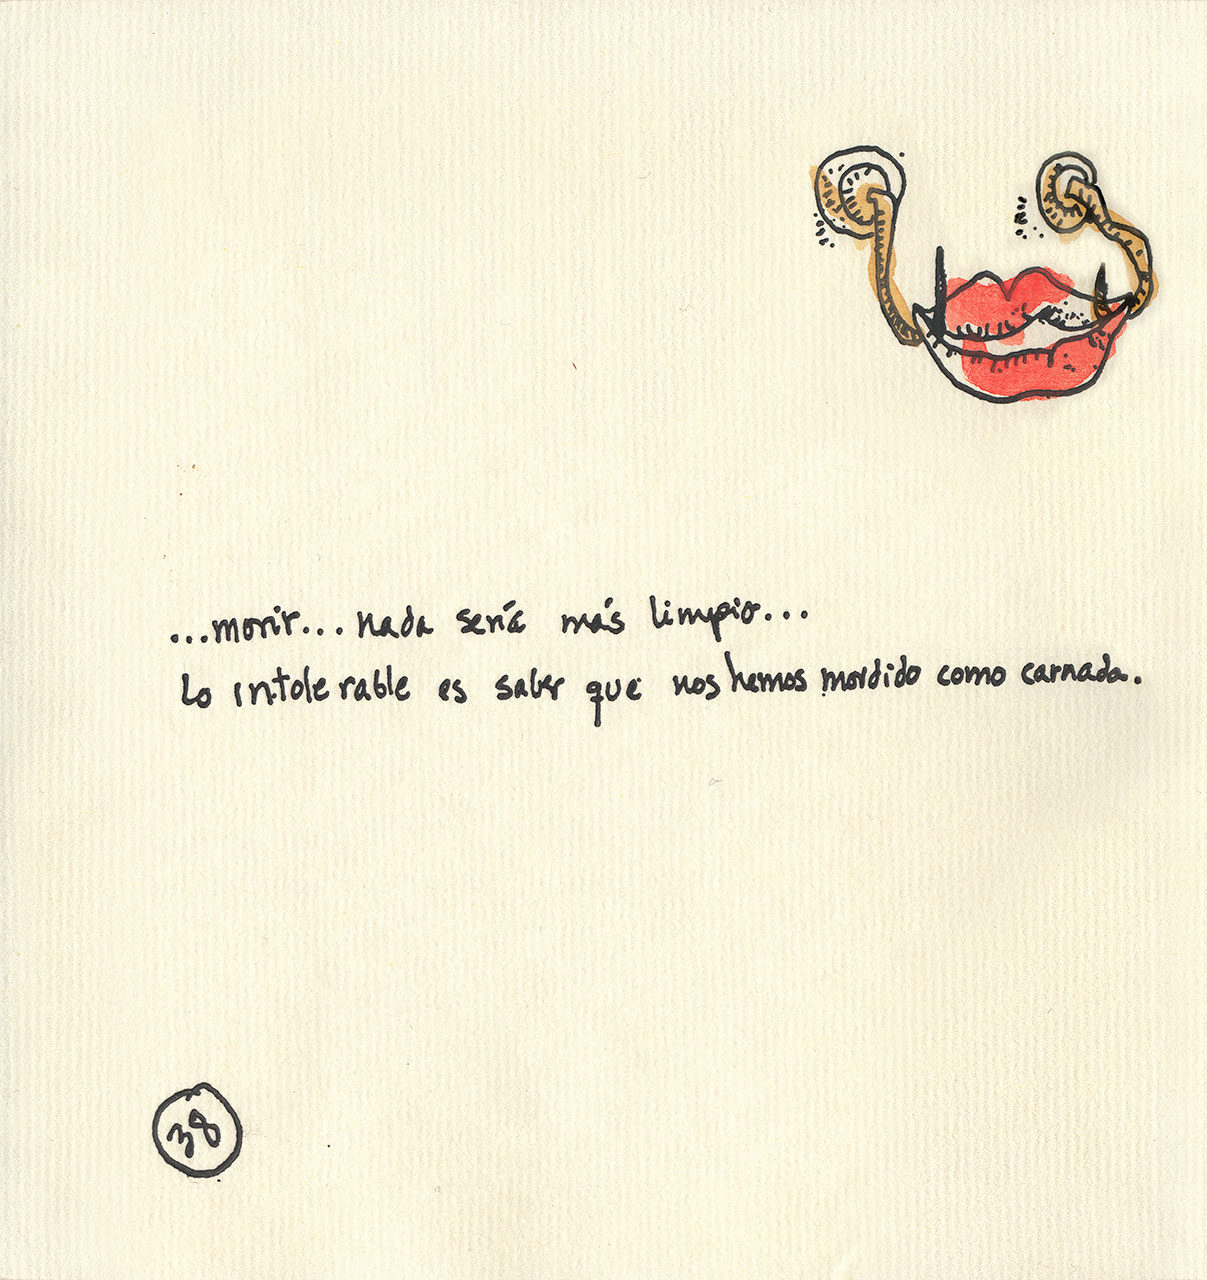 ...morir... nada sería más limpio...
Lo intolerable es saber que nos hemos mordido como carnada.
38